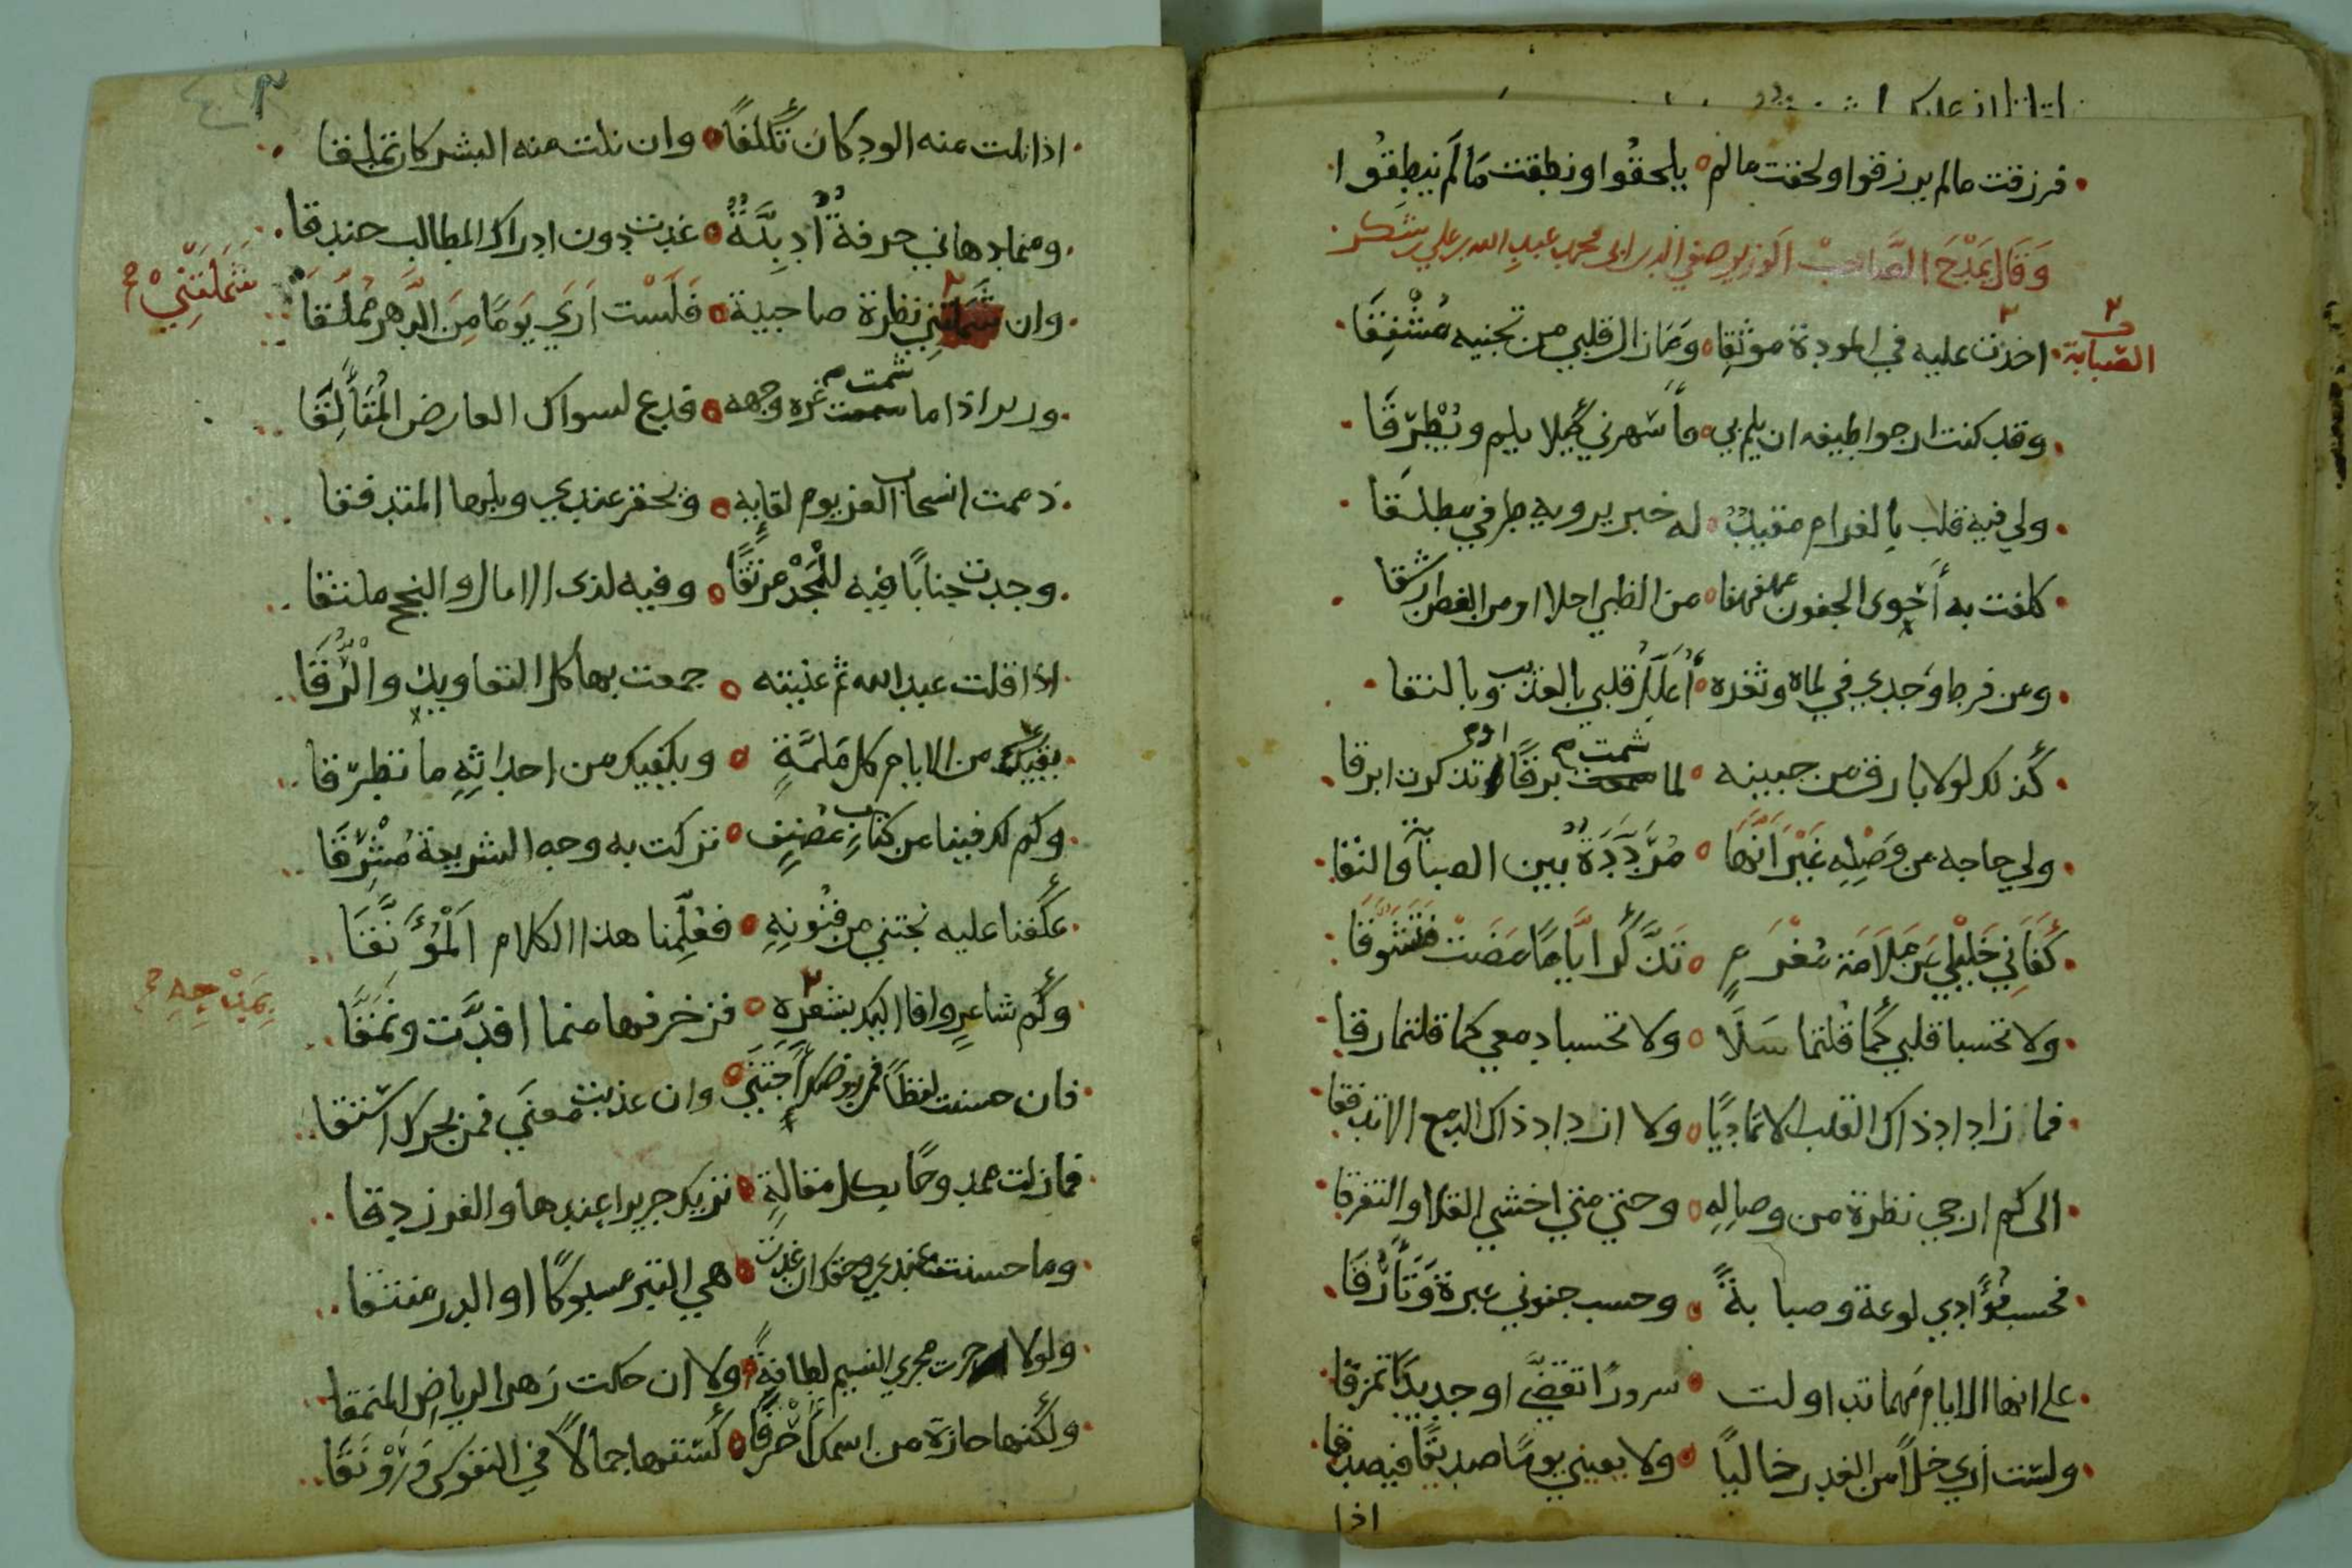 فرزقت مالم يرزقوا ولحقت مالم يلحقوا ونطقت مَا لَم ينطِقُوا
وَقَالَ يَمْدَحُ الصَّاحِبْ الوَزير صفي الدين ابى محمد عبدِ الله بن علي بن شكر
الصّبابة
اخذت عليه في المودة موثِقا وَمَا زال قلبي من تجنيه مُشْفِقَا
وقد كنت ارجوا طيفه ان يلم بي فأسهرني كيلا يلم ويَطْرقَا
ولي فيه قلب بالغرام مقيدٌ له خبر يرويه طرفي مطلقا
كلفت به أحوى الجفون مهفهفا من الظبي احلا او من الغصن ارشقا
ومن فرط وَجدي في لماهُ وثغره أُعَلِّلُ قلبي بالعذيب وبالنقا
كذلك لولا بارق من جبينه لما شمت برقًا او تذكرت ابرقا
ولي حاجه من وَصْلِه غَيْرَ أنَّهَا مُرَدَّدَةٌ بين الصبا والنقا
كَفَانِي خَليْلي مِن مَلَامَة مُغْرَمٍ تَذَّكَر ايَّامًا مَضَتْ فَتَشَوَّقَا
ولا تحسبا قلبي كَما قُلتما سَلَا ولا تحسبا دمعي كما قلتما رقا
فما ازداد ذاك القلب الا تماديًا ولا ازداد ذاك الدمع الا تدفقا
الى كم ارجي نظرة من وصالِهِ وحتى متى اخشي القلا والتفرقا
فحسب فُؤَادي لوعة وصبابةً وحسب جفوني عبرةً وَتَأَرُّقَا
على انها الايام مهما تداولت سرورًا تقضَّي او جديدًا تمزقا
ولست أرى خلًا من الغدر خاليًا ولا بعيني يومًا صديقًا فيصدقا
اذا
اذا نلت منه الود كان تَكَلُّفًا وان نلت منه البشر كان تملقا
ومما دهاني حرفةٌ أدبيَّةٌ غدت دون ادراك المطالب خندقا
وان شَمَلتني نظرة صاحبية فَلَسْت اَرَي يَوَمًا مِنَ الدَّهر مُمْلقَا
شَمَلَتَنِيْ
وزير اذا ما شمت غره وجهه فدع لسواك العارض المُتَألِّقَا
ذممت السحاب الغر يوم لقايه وتحقر عندي وبلها المتدفقا
وجدت جنابًا فيه للمَجْدْ مرتقًا وفيه لذى الامال والنجح ملتقا
اذا قلت عبد الله ثم عنيته جمعت بها كل التعاويذ والرُّقَا
يقيك من الايام كل مَلمَّةٍ ويكفيك من احداثِهِ ما تطرّقا
وكم لك فينا من كتابٍ مُصَنفٍ تركت به وجه الشريعة مُشْرِقَا
عكفنا عليه نجتني من فنُونِهِ فعُلِّمنا هذا الكلام المُؤَنَّقَا
وكَم شاعرٍ وافا اليك بشعْرِهِ فزخرفها مما افدَّت ونَمَّقَا
بِمَدْحِهِ
فان حسنت لفظًا فمن روضك أجتَنَي وان عذبت معنَي فمن بحرك استقا
فما زلت ممدوحًا بكل مقالةٍ تريك جريرا عندها والفرزدقا
وما حسنت عندي وحقك ان غدت هي التبر مسبوكًا او الدر منتقا
ولولا جرت مجرى النسيم لطافةً ولا ان حكت زهر الرياض المنمقا
ولكنها حازة من اسمك أحْرفًا كَستها جمالاً في النفوس وَرَوْنَقَا